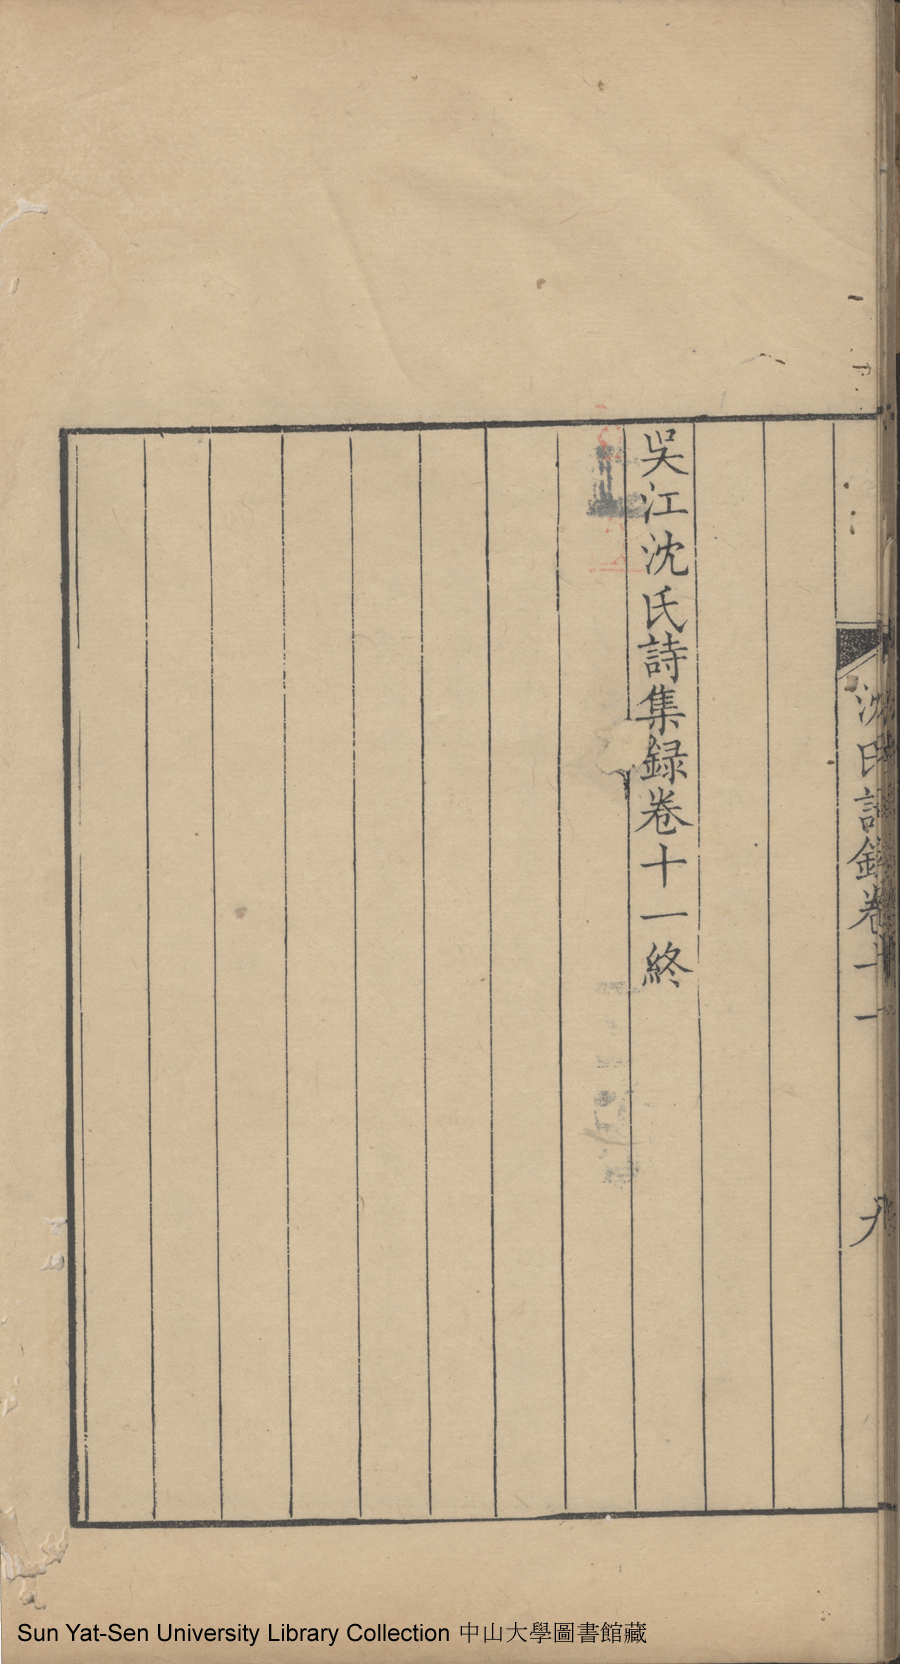 沈氏詩錄卷十一
九
吳江沈氏詩集録卷十一終
Sun Yat-Sen University Library Collection 中山大學圖書館藏